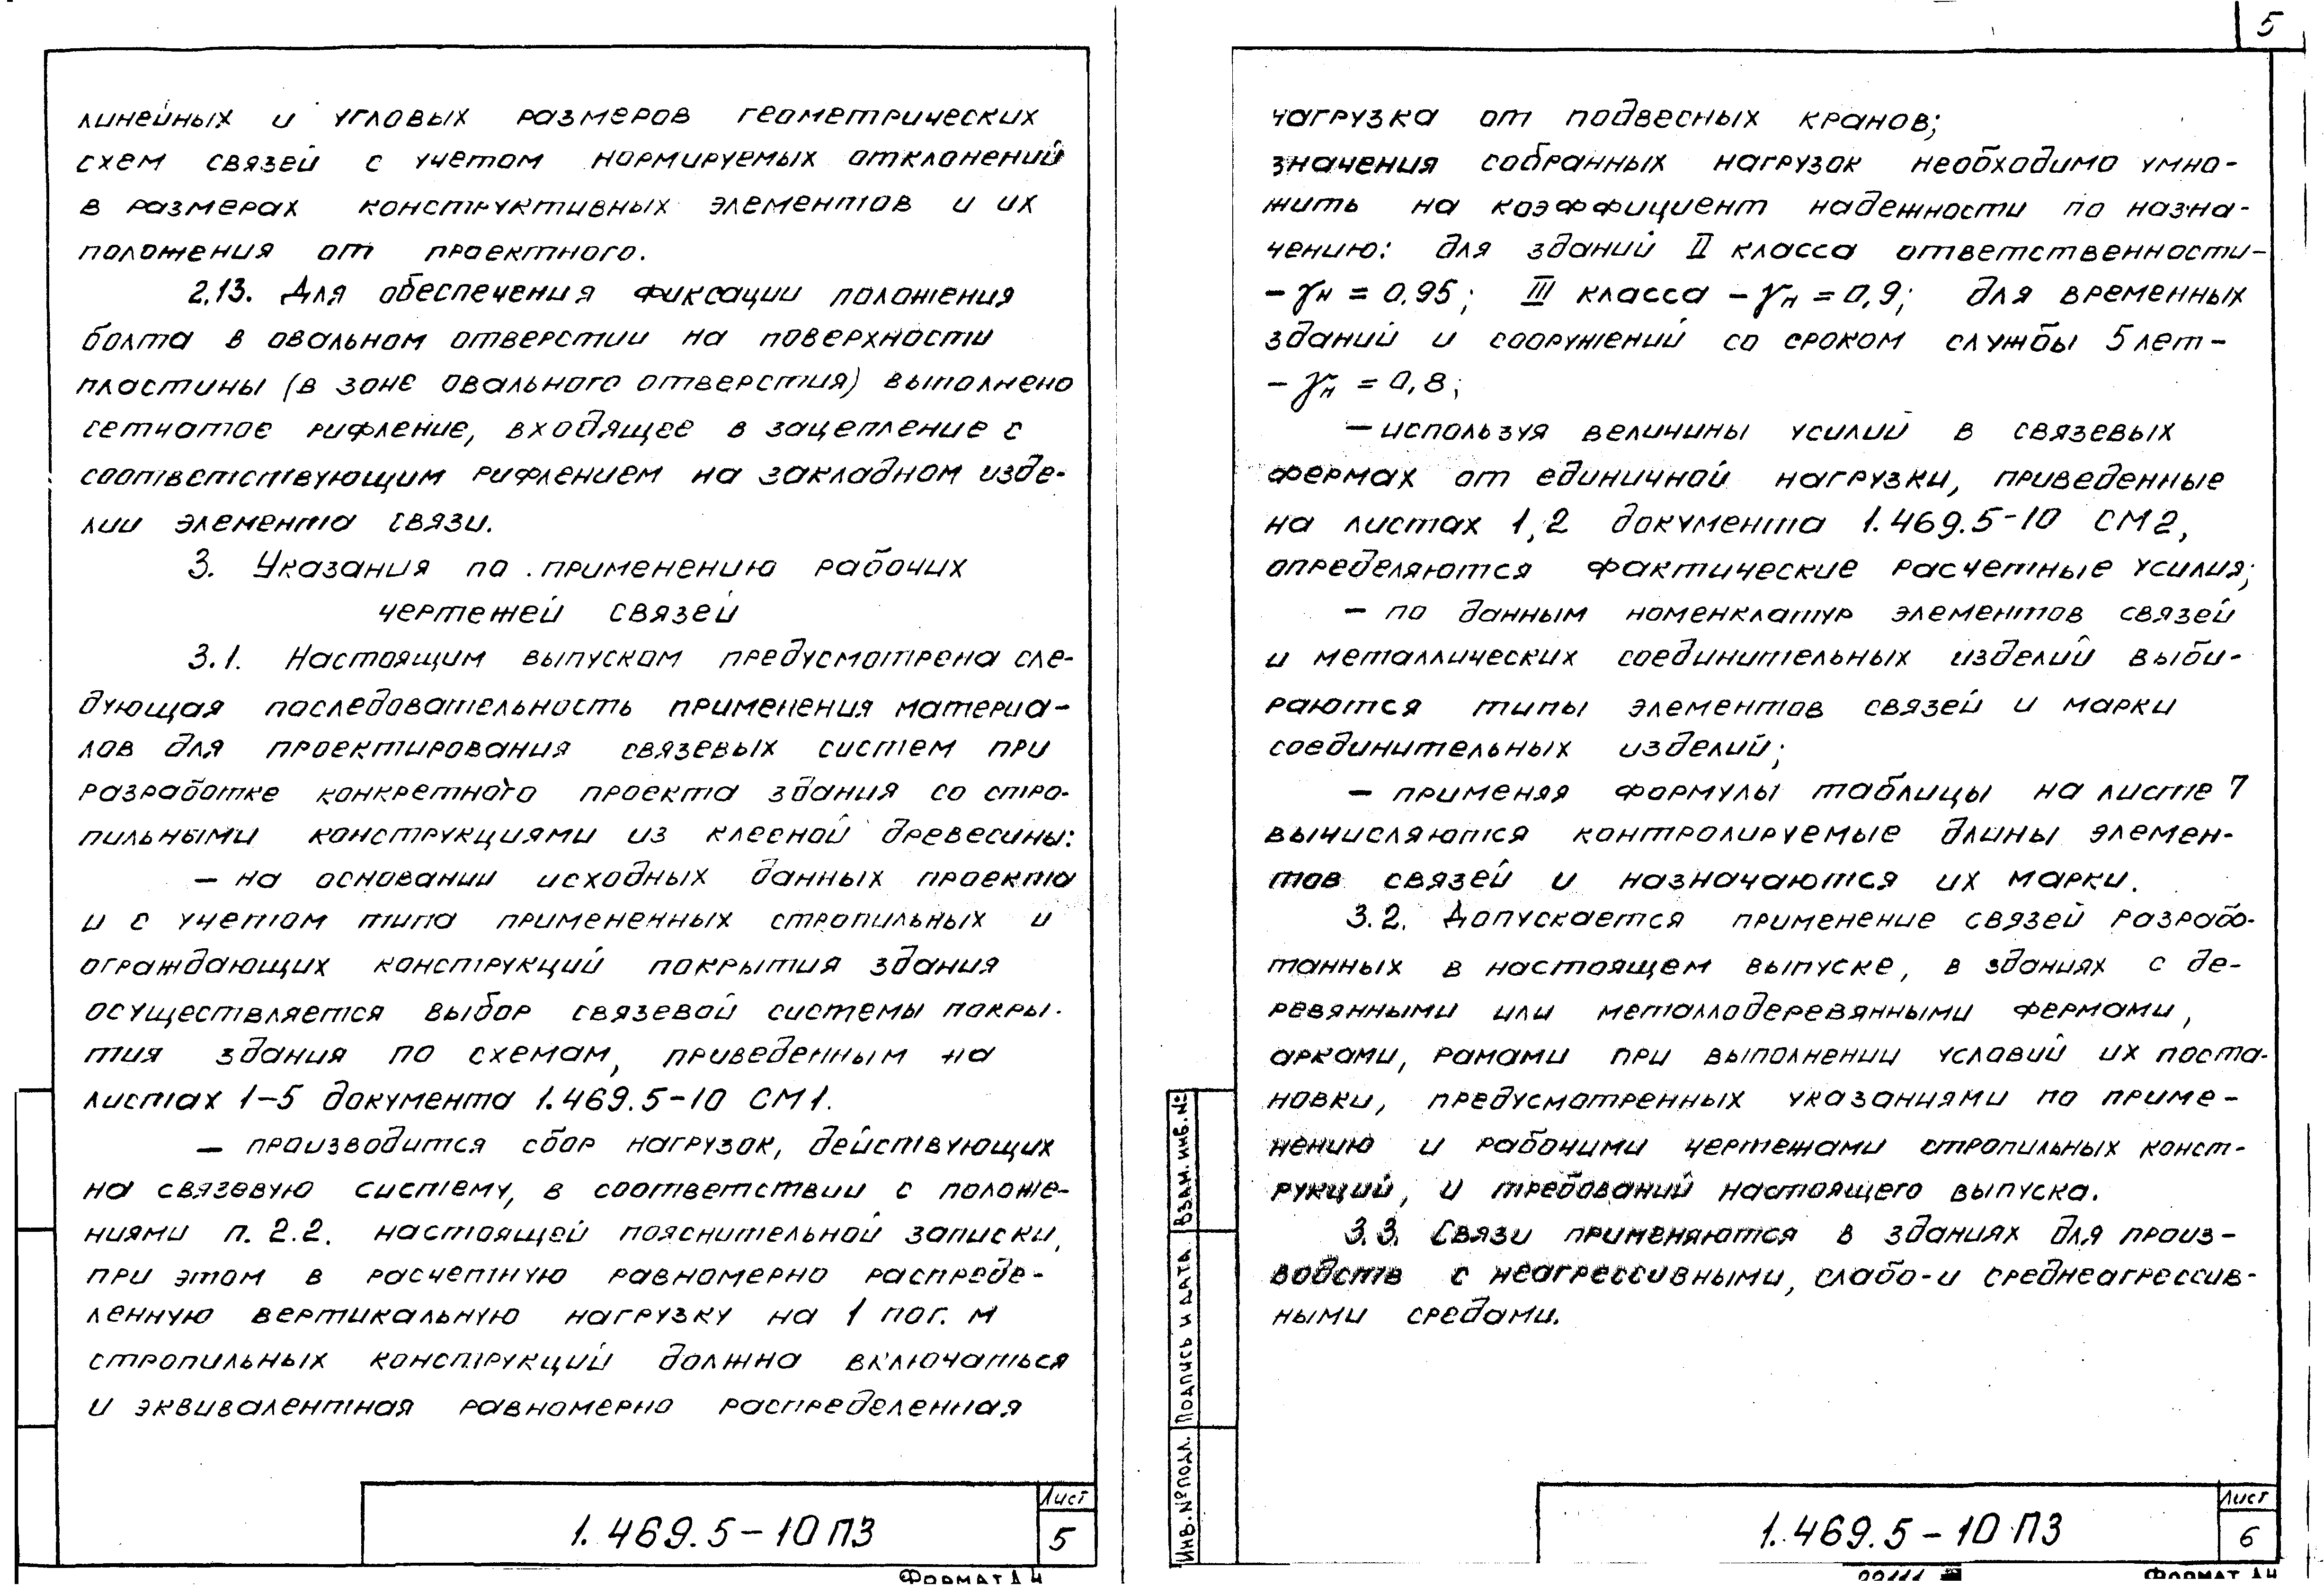 линейных и угловых размеров геометрических
схем связей с учетом нормируемых отклонений
в размерах конструктивных элементов и их
положения от проектного.
2.13. Для обеспечения фиксации положения
болта в овальном отверстии на поверхности
пластины (в зоне овального отверстия) выполнено
сетчатое рифление, входящее в зацепление с
соответствующим рифлением на закладном изде-
лии элемента связи.
3. Указания по применению рабочих
чертежей связей
3.1. Настоящим выпуском предусмотрена сле-
дующая последовательность применения материа-
лов для проектирования связевых систем при
разработке конкретного проекта здания со стро-
пильными конструкциями из клееной древесины:
— на основании исходных данных проекта
и с учетом типа примененных стропильных и
ограждающих конструкций покрытия здания
осуществляется выбор связевой системы покры-
тия здания по схемам, приведенным на
листах 1-5 документа 1.469.5-10 СМ1.
— производится сбор нагрузок, действующих
на связевую систему, в соответствии с положе-
ниями п. 2.2. настоящей пояснительной записки,
при этом в расчетную равномерно распреде-
ленную вертикальную нагрузку на 1 пог. м
стропильных конструкций должна включаться
и эквивалентная равномерно распределенная
1.469.5-10 ПЗ
Лист
5
Формат А4
5
нагрузка от подвесных кранов;
значения собранных нагрузок необходимо умно-
жить на коэффициент надежности по назна-
чению: для зданий II класса ответственности-
- γн = 0,95; III класса - γн = 0,9; для временных
зданий и сооружений со сроком службы 5 лет-
- γн = 0,8;
— используя величины усилий в связевых
фермах от единичной нагрузки, приведенные
на листах 1,2 документа 1.469.5-10 СМ2,
определяются фактические расчетные усилия;
— по данным номенклатур элементов связей
и металлических соединительных изделий выби-
раются типы элементов связей и марки
соединительных изделий;
— применяя формулы таблицы на листе 7
вычисляются контролируемые длины элемен-
тов связей и назначаются их марки.
3.2. Допускается применение связей разрабо-
танных в настоящем выпуске, в зданиях с де-
ревянными или металлодеревянными фермами,
арками, рамами при выполнении условий их поста-
новки, предусмотренных указаниями по приме-
нению и рабочими чертежами стропильных конст-
рукций, и требований настоящего выпуска.
3.3. Связи применяются в зданиях для произ-
водств с неагрессивными, слабо- и среднеагрессив-
ными средами.
Взам. инв. №
Подпись и дата
Инв. № подл.
1.469.5-10 ПЗ
Лист
6
Формат А4